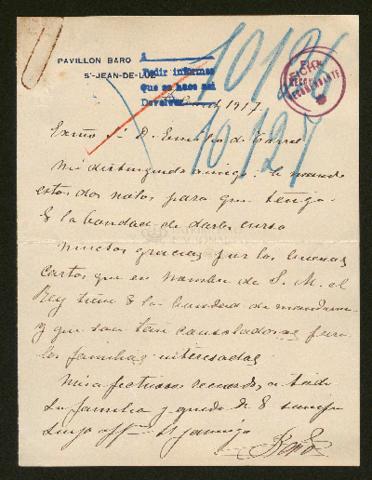 PAVILLON BARO
ST-JEAN-DE-LUZ
A
Pedir informes
Que se hace así
Devolver
1917.
10126
10127
EL
RECOMENDANTE
Exmo Sr D. Emilio de Torres
Mi distinguido amigo: le mando
estas dos notas para que tenga
V la bondad de darles curso
Muchas gracias por las buenas
cartas que en nombre de S. M. el
Rey tiene V la bondad de mandarme
y que son tan consoladoras para
las familias interesadas
Mis afectuosos recuerdos a toda
su familia y quedo de V siempre
suyo affmo y amigo